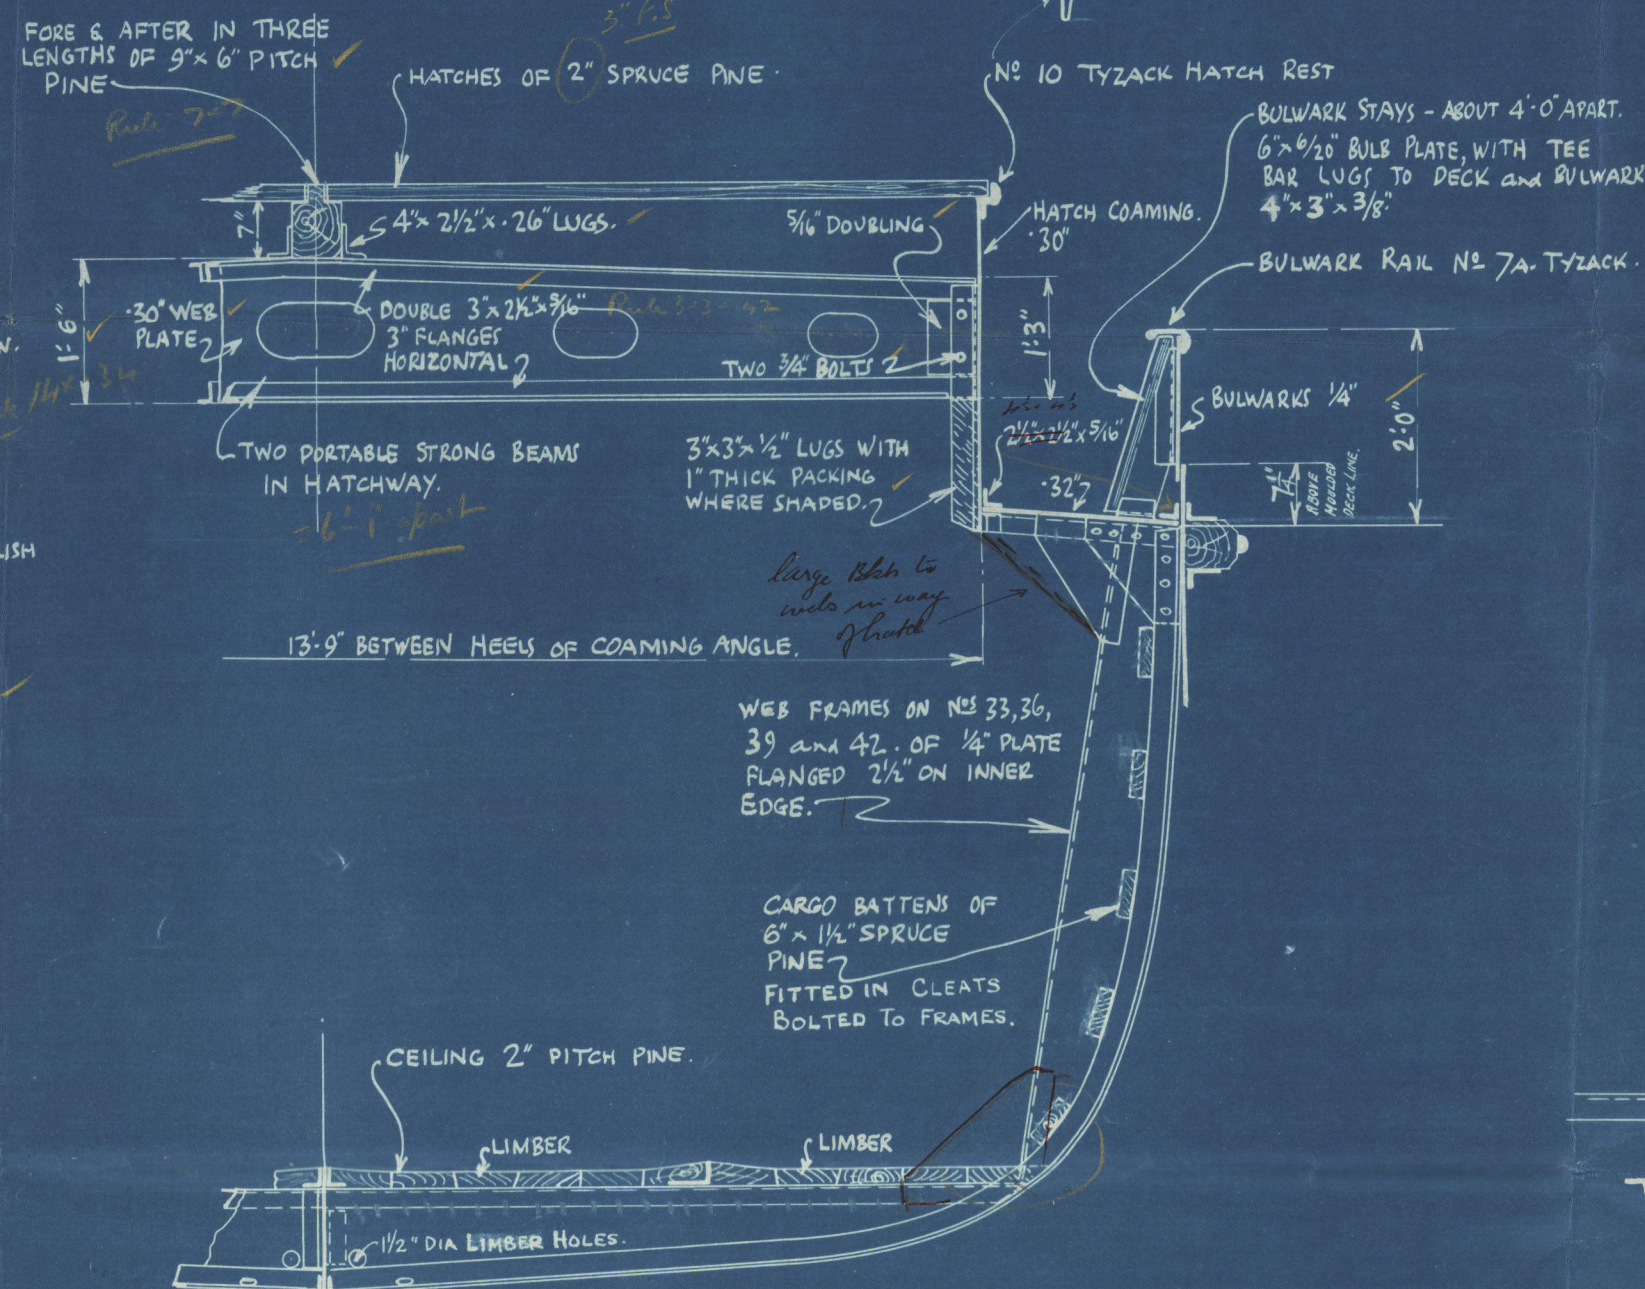 FORE & AFTER IN THREE
LENGTHS OF 9"x 6" PITCH
PINE
3" F.S
HATCHES OF 2" SPRUCE PINE.
Nº 10 TYZACK HATCH REST
BULWARK STAYS - ABOUT 4'-0" APART.
6"x 6/20" BULB PLATE, WITH TEE
BAR LUGS TO DECK and BULWARK
4"x 3"x 3/8"
Rule 7x7
7"
4"x 2½"x .26" LUGS.
5/16" DOUBLING
HATCH COAMING.
.30"
BULWARK RAIL Nº 7A. TYZACK.
1'-6"
.30" WEB
PLATE
DOUBLE 3"x 2½"x 5/16"
3" FLANGES
HORIZONTAL
TWO ¾" BOLTS
1'-3"
BULWARKS ¼"
2'-0"
TWO PORTABLE STRONG BEAMS
IN HATCHWAY.
6'-1" apart
3"x3"x½" LUGS WITH
1" THICK PACKING
WHERE SHADED.
2½"x2½"x5/16"
.32"
7¼"
ABOVE
MOULDED
DECK LINE.
LISH
large Bkts to
webs in way
of hatch
13'-9" BETWEEN HEELS OF COAMING ANGLE.
WEB FRAMES ON Nos 33,36,
39 and 42. OF ¼" PLATE
FLANGED 2½" ON INNER
EDGE.
CARGO BATTENS OF
6"x 1½" SPRUCE
PINE
FITTED IN CLEATS
BOLTED TO FRAMES.
CEILING 2" PITCH PINE.
LIMBER
LIMBER
1½" DIA LIMBER HOLES.